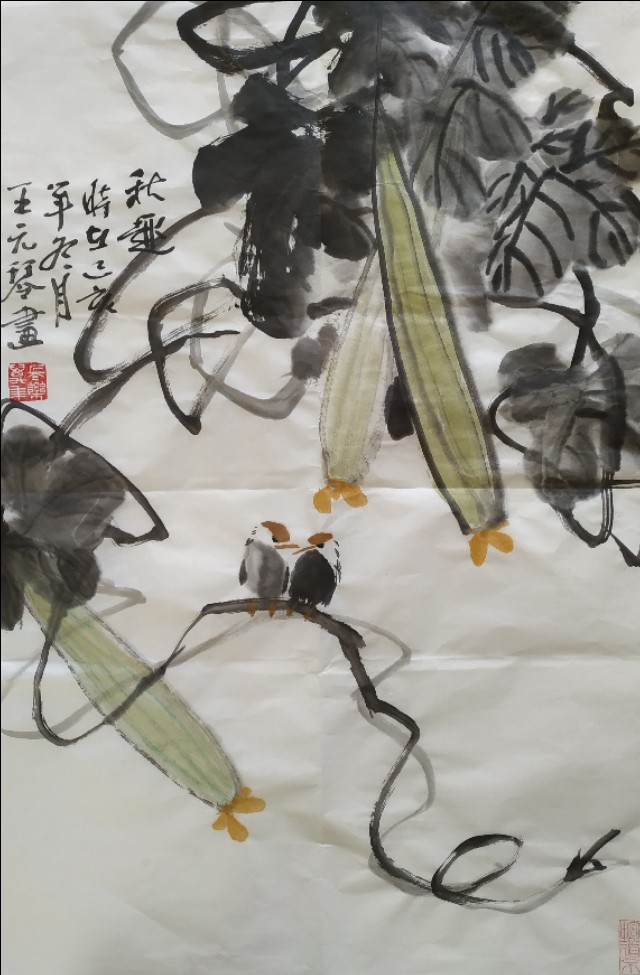 秋趣
時在己亥
年九月
王元琴畫